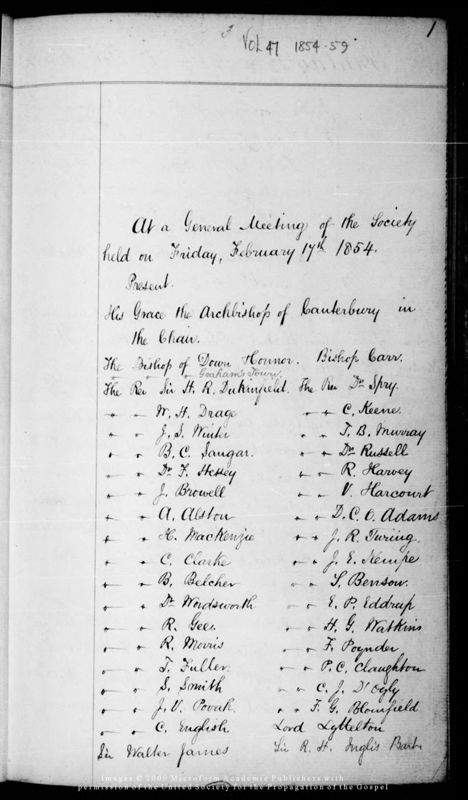 1
Vol 47 1854-59
At a General Meeting of the Society
held on Friday, February 17th 1854.
Present.
His Grace the Archbishop of Canterbury in
the Chair.
The Bishop of Down Honnor. Bishop Carr.
Graham's Town.
The Rev Sir H. R. Dukinfield. The Rev Dr. Spry.
" " W. H. Drage " " C. Keene.
" " J. S. Winter " " T. B. Murray
" " B. C. Sangar. " " Dr Russell
" " Dr. F. Hessey " " R. Harvey
" " J. Browell " " V. Harcourt
" " A. Alston " " D. C. O. Adams
" " H. MacKenzie " " J. R. Turing.
" " C. Clarke " " J. E. Kempe
" " B. Belcher " " S. Benson.
" " Dr Wordsworth " " E. P. Eddrup
" " R. Gee. " " H. G. Watkins
" " R. Morris " " F. Poynder
" " T. Fuller. " " P. C. Claughton
" " S. Smith " " C. J. D'Oyly
" " J. V. Povah. " " F. G. Blomfield
" " C. English Lord Lyttelton
Sir Walter James Sir R. H. Inglis Bart.
Images © 2009 Microform Academic Publishers with
permission of the United Society for the Propagation of the Gospel